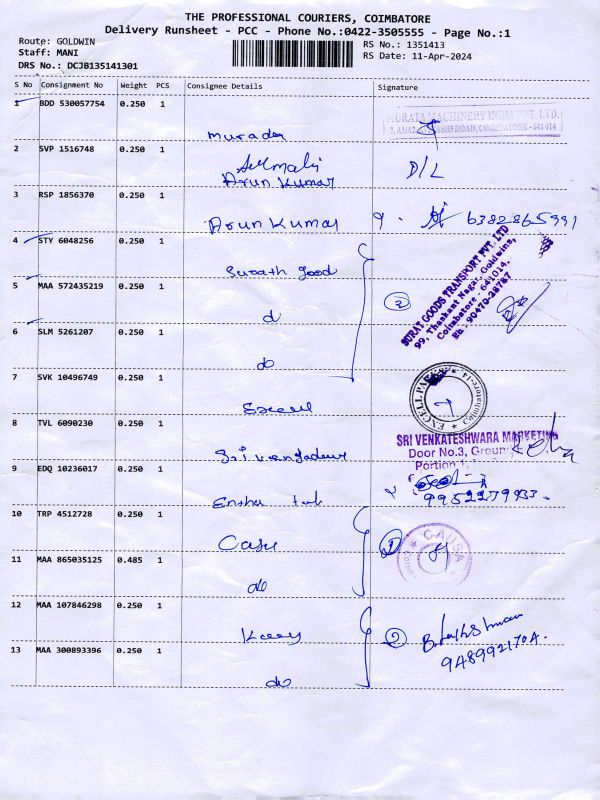 THE PROFESSIONAL COURIERS, COIMBATORE
Delivery Runsheet - PCC - Phone No.:0422-3505555 - Page No.:1
Route: GOLDWIN
Staff: MANI
DRS No.: DCJB135141301
RS No.: 1351413
RS Date: 11-Apr-2024
S No Consignment No Weight PCS Consignee Details Signature
1 BDD 530057754 0.250 1
MURATA MACHINERY INDIA PVT. LTD.
COIMBATORE - 641 014
2 SVP 1516748 0.250 1
Arun Kumar D/L
3 RSP 1856370 0.250 1
Arun Kumar 6382865991
4 STY 6048256 0.250 1
Surath good
SURAT GOODS TRANSPORT PVT. LTD
99, Thankam Nagar, Goldwins,
Coimbatore - 641014.
Ph : 90470-28787
5 MAA 572435219 0.250 1
d 2
6 SLM 5261207 0.250 1
do
7 SVK 10496749 0.250 1
Excell
EXCELL Coimbatore-14
8 TVL 6090230 0.250 1
Sri Vengadeur
SRI VENKATESHWARA MARKETING
Door No.3, Ground
Portion 1,
9 EDQ 10236017 0.250 1
9952279933.
10 TRP 4512728 0.250 1
11 MAA 865035125 0.485 1
do
CAUSA
12 MAA 107846298 0.250 1
2
13 MAA 300893396 0.250 1
do